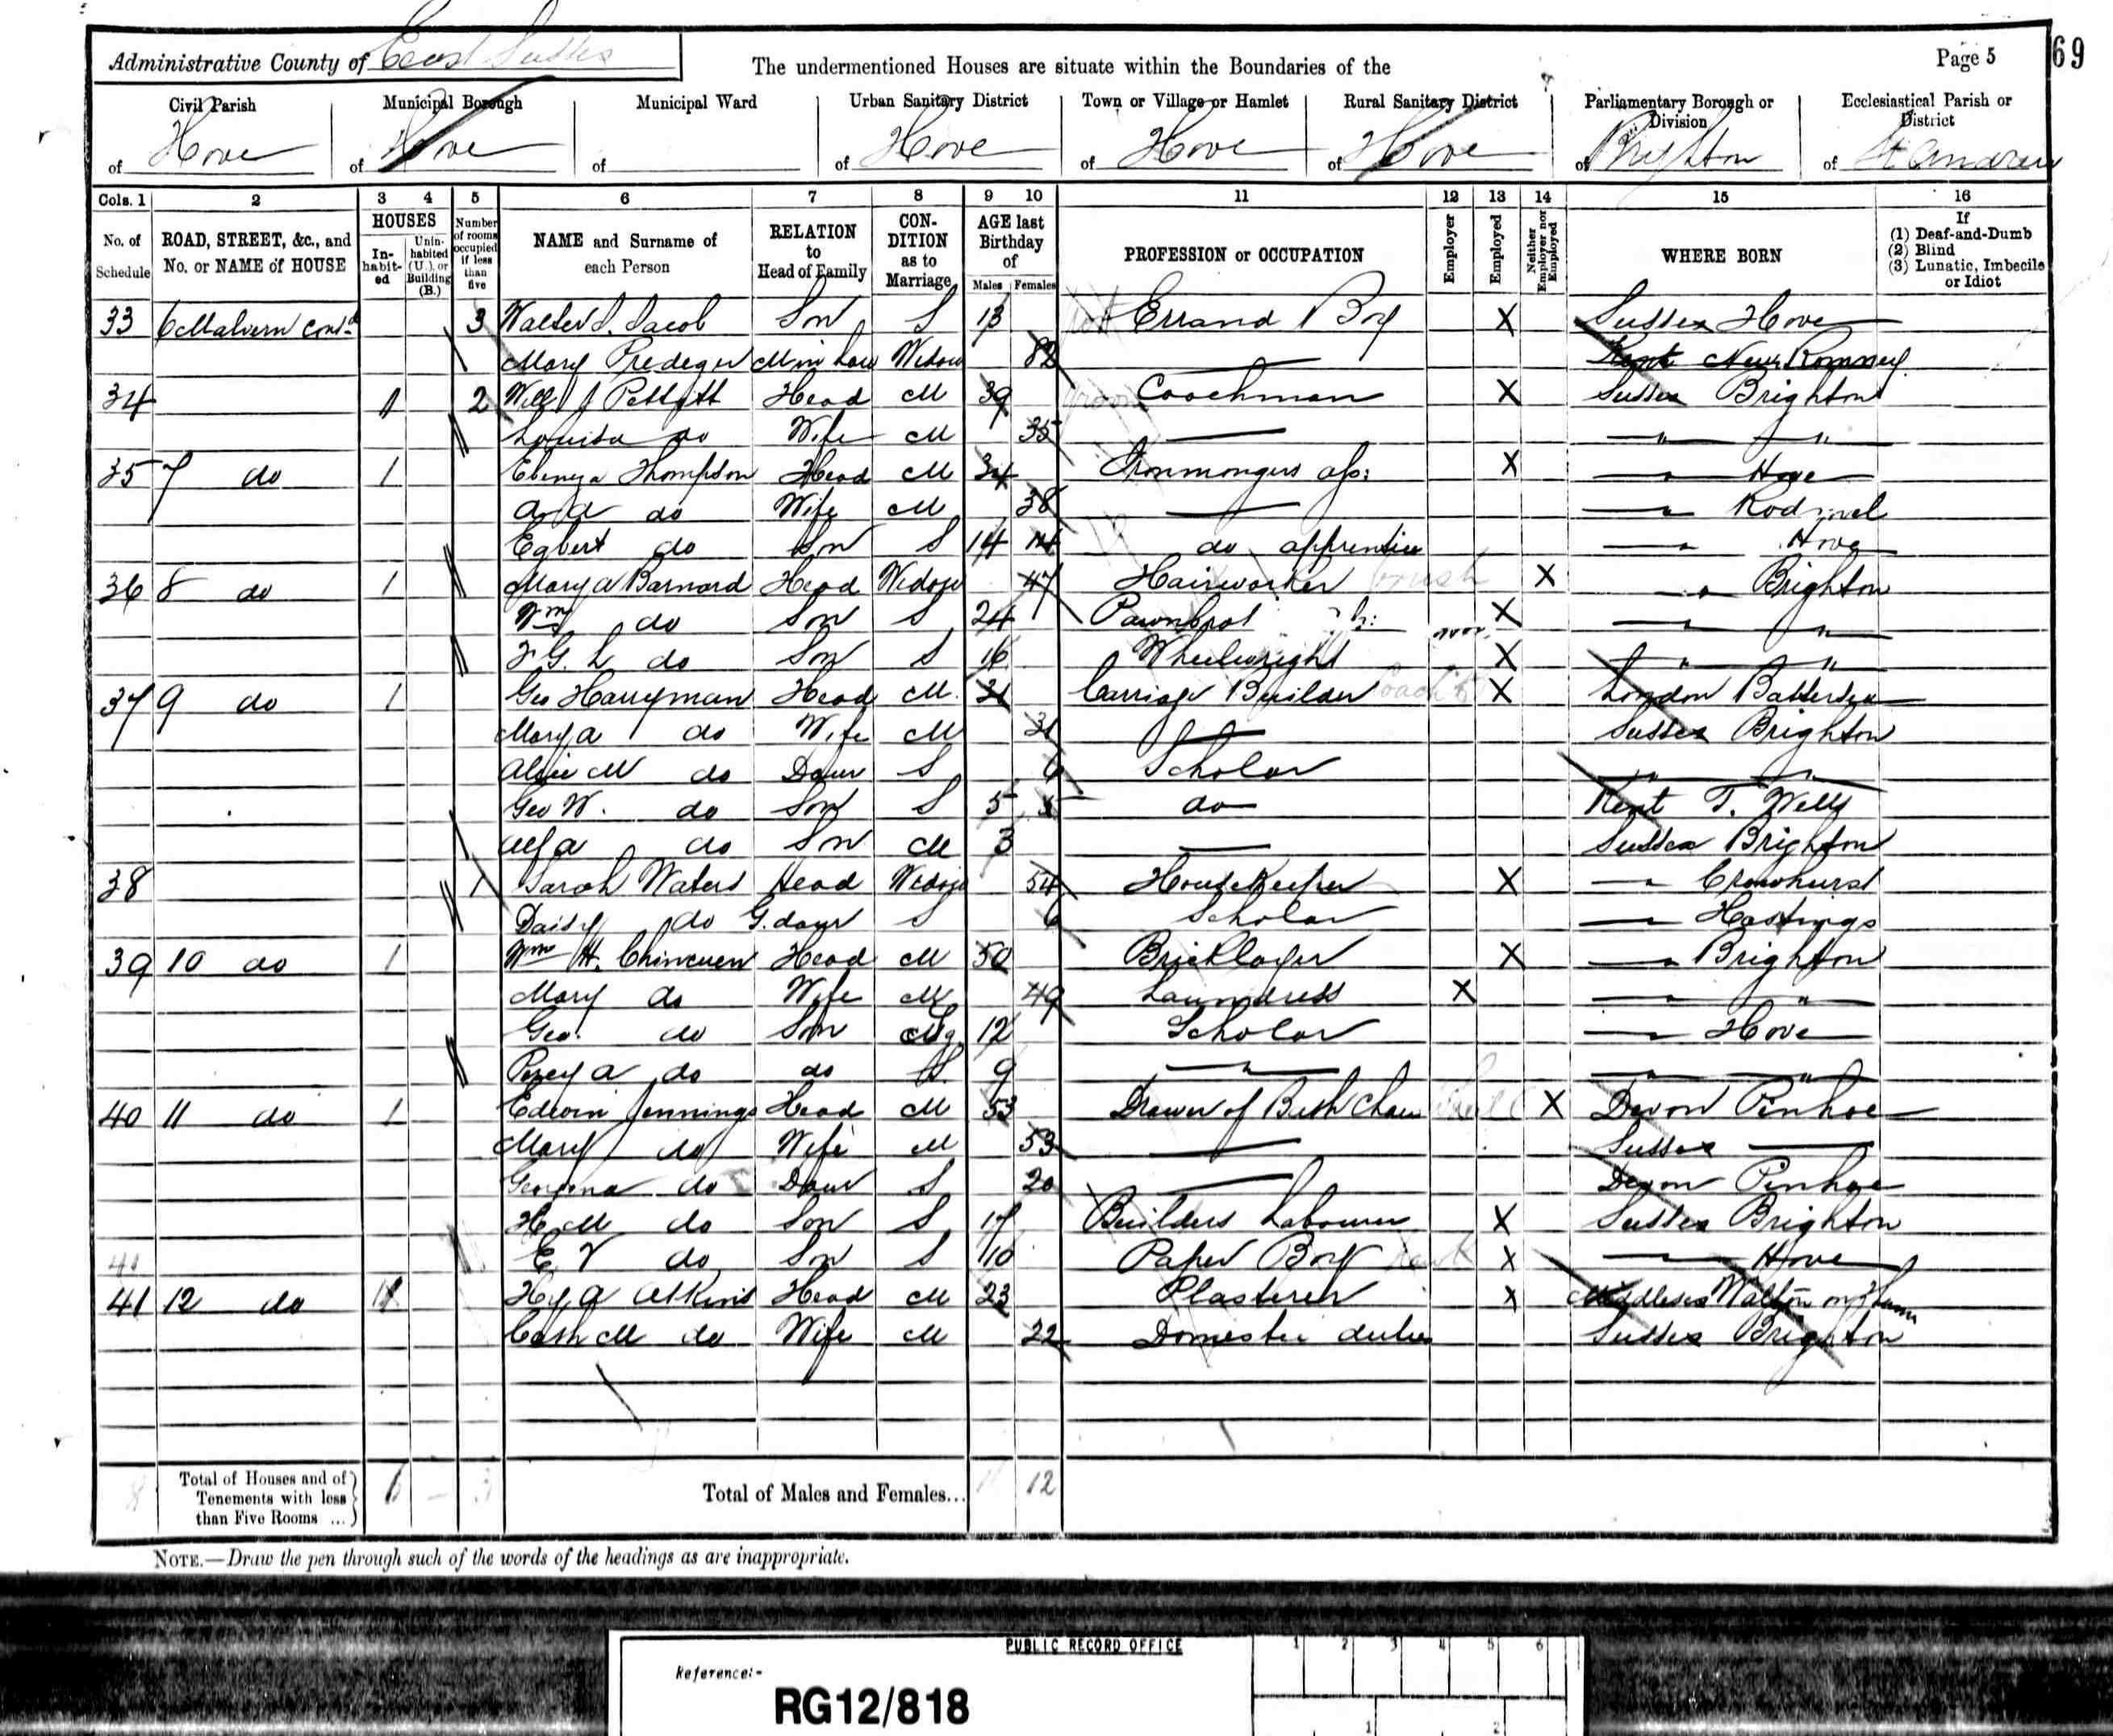 Administrative County of East Sussex
The undermentioned Houses are situate within the Boundaries of the
Page 5
69
Civil Parish
Municipal Borough
Municipal Ward
Urban Sanitary District
Town or Village or Hamlet
Rural Sanitary District
Parliamentary Borough or Division
Ecclesiastical Parish or District
of Hove
of Hove
of
of Hove
of Hove
of Hove
of Brighton
of St Andrew
Cols. 1 2 3 4 5 6 7 8 9 10 11 12 13 14 15 16
No. of Schedule
ROAD, STREET, &c., and No. or NAME of HOUSE
HOUSES
In-habit-ed
Unin-habited (U.), or Building (B.)
Number of rooms occupied if less than five
NAME and Surname of each Person
RELATION to Head of Family
CON-DITION as to Marriage
AGE last Birthday of
Males Females
PROFESSION or OCCUPATION
Employer
Employed
Neither Employer nor Employed
WHERE BORN
If (1) Deaf-and-Dumb (2) Blind (3) Lunatic, Imbecile or Idiot
33 6 Malvern 3 Walter Jacob Son S 13 Errand Boy X Sussex Hove
Mary M in law Widow 82 Kent New Romney
34 1 2 Head M 39 Coachman X Sussex Brighton
Louisa do Wife M 35 " "
35 7 do 1 Thompson Head M 34 Ironmongers X " Hove
do Wife M 38 " Rodmel
Egbert do Son S 14 14 do apprentice " Hove
36 8 do 1 Mary A Barnard Head Widow 47 Hairworker X " Brighton
Wm do Son S 24 X " "
F. G. L do Son S 16 Wheelwright X " "
37 9 do 1 Geo Harryman Head M 31 Carriage Builder X London Battersea
Mary A do Wife M 31 Sussex Brighton
Alice M do Daur S 6 Scholar " "
Geo W. do Son S 5 5 do Kent T. Wells
Alf A do Son M 3 Sussex Brighton
38 1 Sarah Waters Head Widow 54 HouseKeeper X " Crowhurst
Daisy do G. daur S 6 Scholar " Hastings
39 10 do 1 Wm H. Head M 50 Bricklayer X " Brighton
Mary do Wife M 49 Laundress X " "
Geo. do Son 12 Scholar " Hove
Percy A do do S 9 " "
40 11 do 1 Edwin Jennings Head M 53 Drawer of Bath Chair X Devon Pinhoe
Mary do Wife M 53 Sussex
Georgina do Daur S 20 Devon Pinhoe
H. M do Son S 17 Builders Labourer X Sussex Brighton
41
E. V do Son S 10 Paper Boy X " Hove
41 12 do 1 Hy A Atkins Head M 23 Plasterer X Middlesex Walton on Thames
Cath M do Wife M 22 Domestic duties Sussex Brighton
Total of Houses and of Tenements with less than Five Rooms ...
6 – 3
Total of Males and Females...
12
NOTE.—Draw the pen through such of the words of the headings as are inappropriate.
PUBLIC RECORD OFFICE
1 2 3 4 5 6
Reference:-
RG12/818
1 2